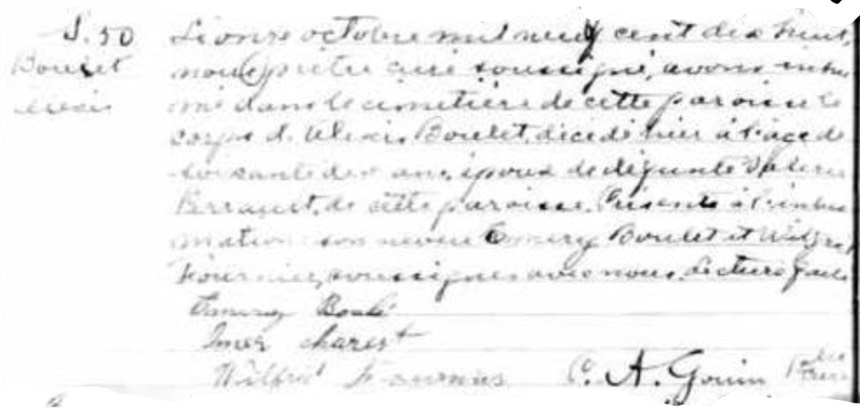 S. 50
Boulet
Alexis
Le onze octobre mil neuf cent dix huit,
nous prêtre curé soussigné, avons inhu
mé dans le cimetière de cette paroisse le
corps d'Alexis Boulet, décédé hier à l'age de
soixante dix ans, époux de défunte
Perrault, de cette paroisse. Présents à l'inhu
mation son neveu Emery Boulet et Wilfrid
Fournier, soussignés avec nous. Lecture faite
Emery Boulé
Omer Charest
Wilfrid Fournier C. A. Gouin Ptre